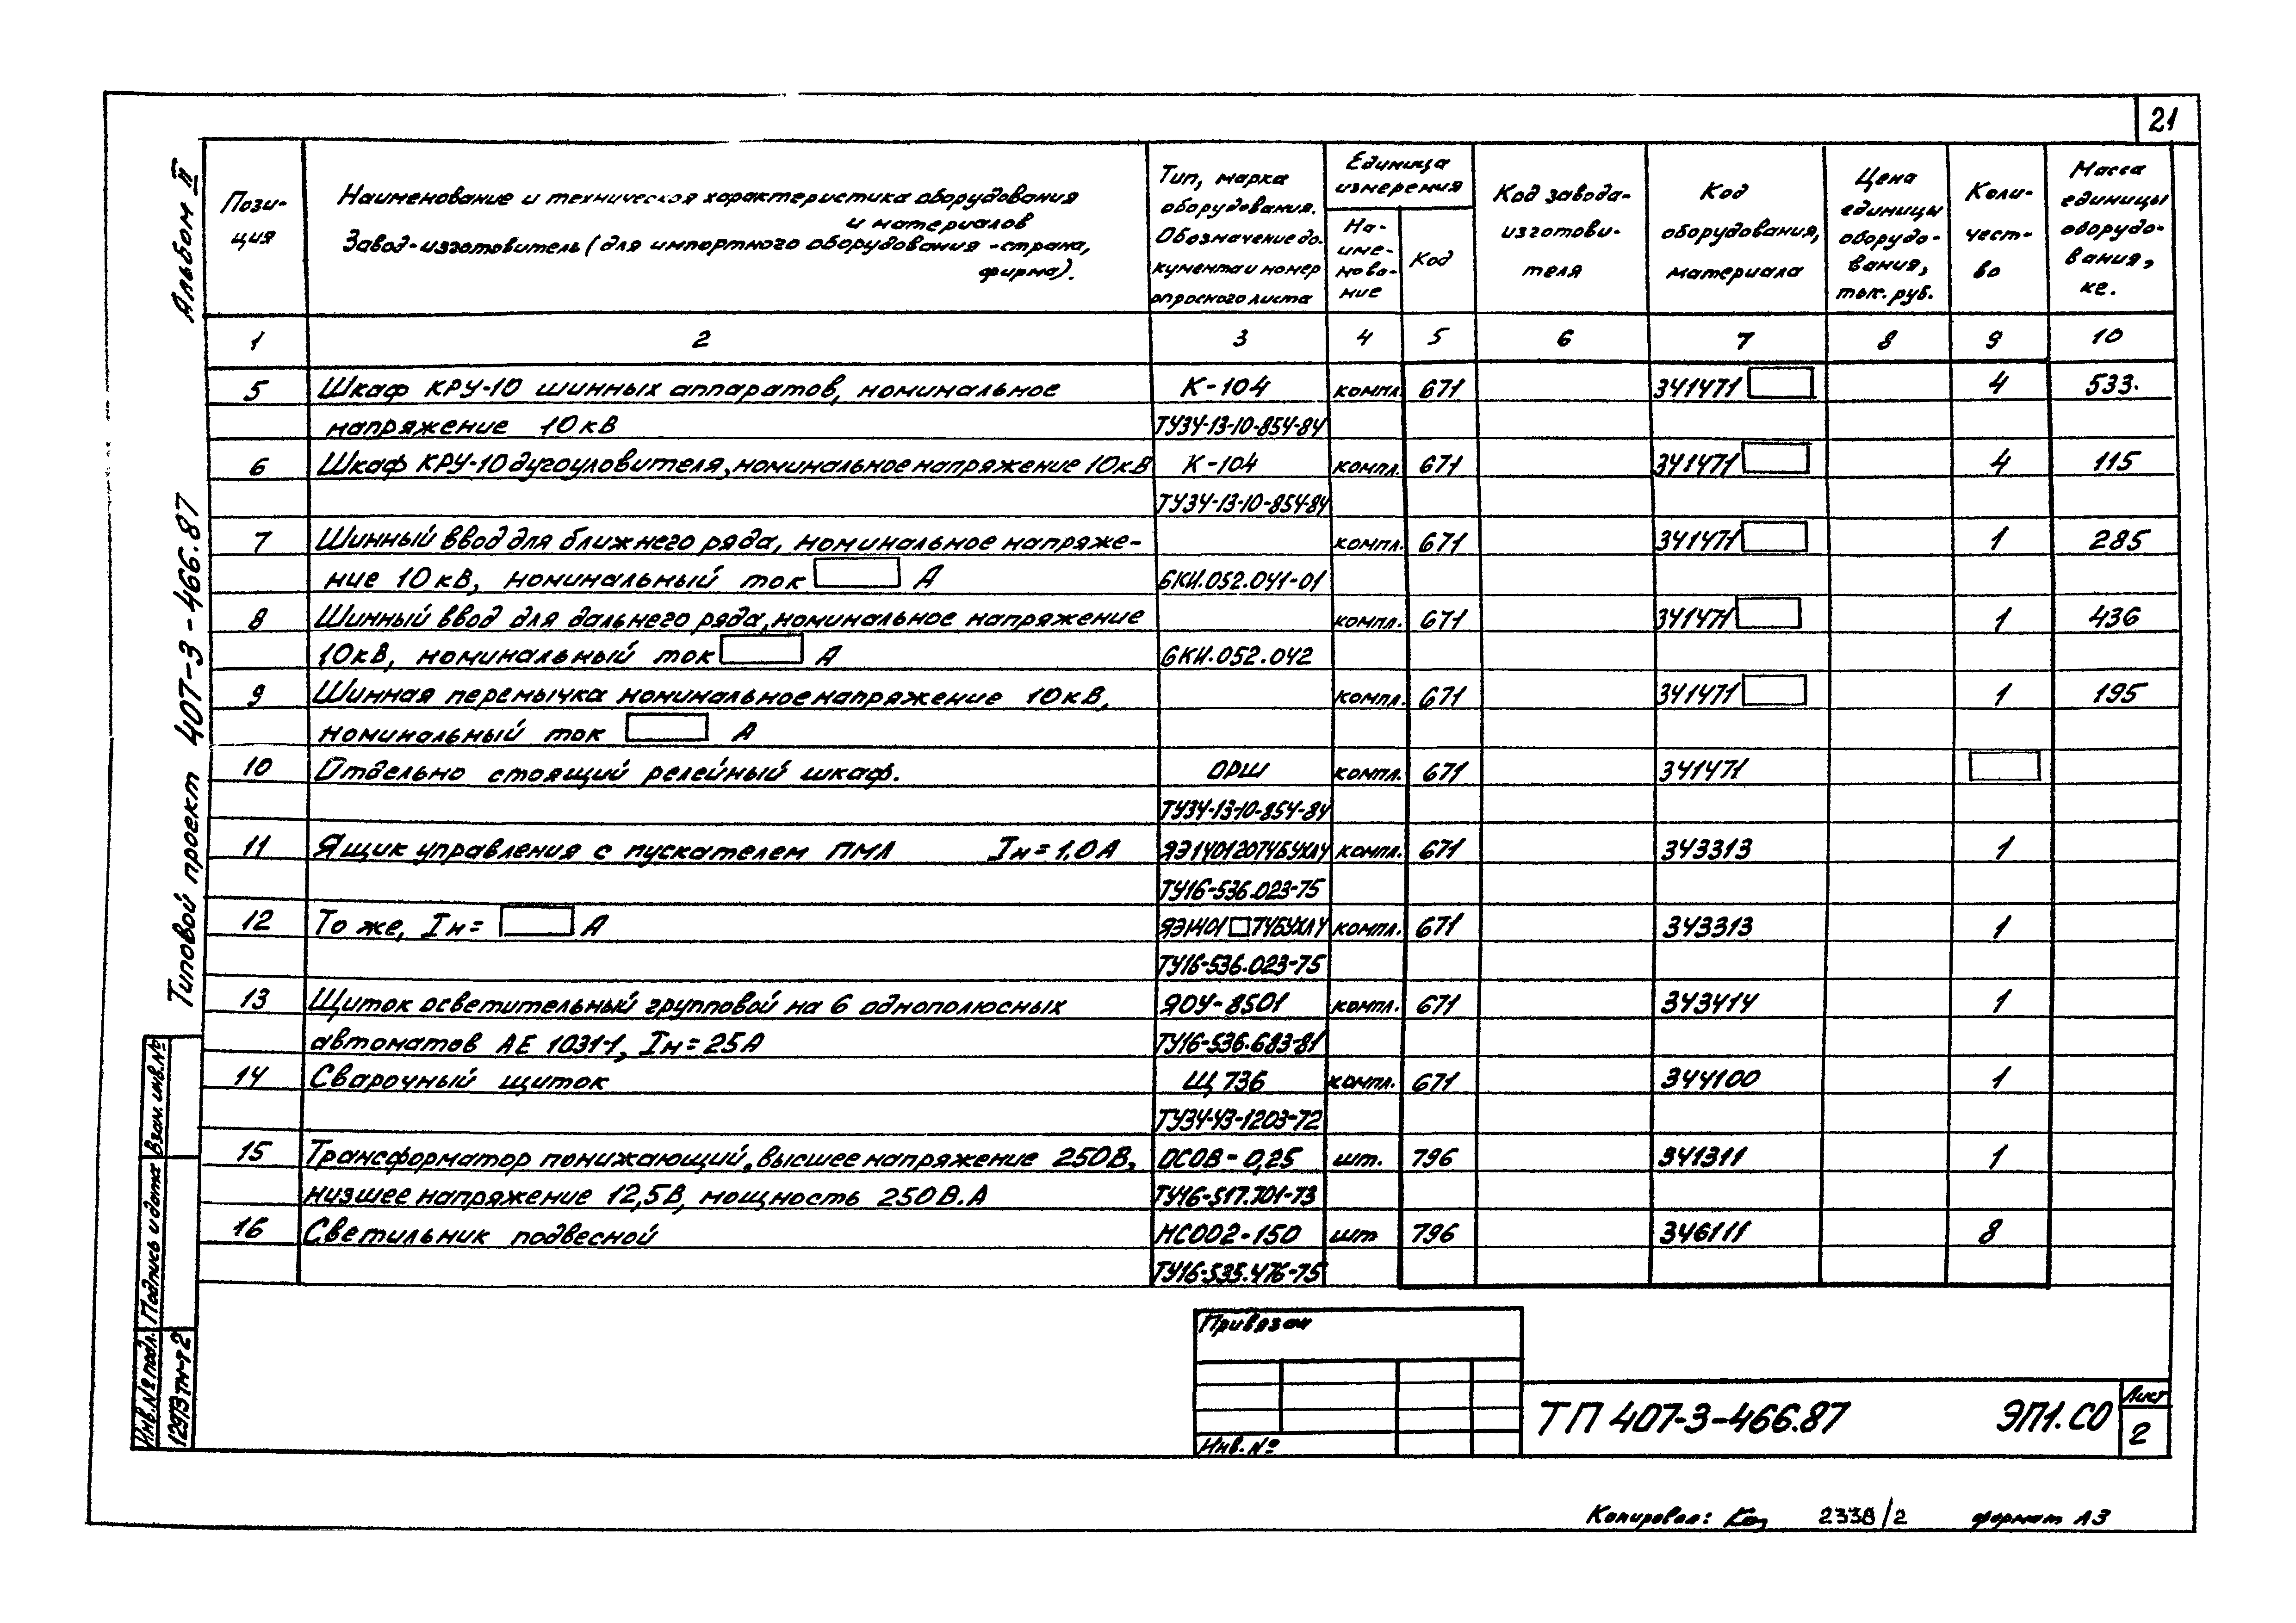 21
Альбом II
Типовой проект 407-3-466.87
Пози-
ция
Наименование и техническая характеристика оборудования
и материалов
Завод-изготовитель (для импортного оборудования - страна,
фирма).
Тип, марка
оборудования.
Обозначение до-
кумента и номер
опросного листа
Единица
измерения
На-
име-
нова-
ние
Код
Код завода-
изготови-
теля
Код
оборудования,
материала
Цена
единицы
оборудо-
вания,
тыс. руб.
Коли-
чест-
во
Масса
единицы
оборудо-
вания,
кг.
1 2 3 4 5 6 7 8 9 10
5 Шкаф КРУ-10 шинных аппаратов, номинальное К-104 компл. 671 341471 4 533.
напряжение 10кВ ТУ34-13-10-854-84
6 Шкаф КРУ-10 дугоуловителя, номинальное напряжение 10кВ К-104 компл. 671 341471 4 115
ТУ34-13-10-854-84
7 Шинный ввод для ближнего ряда, номинальное напряже- компл. 671 341471 1 285
ние 10кВ, номинальный ток А 6КИ.052.041-01
8 Шинный ввод для дальнего ряда, номинальное напряжение компл. 671 341471 1 436
10кВ, номинальный ток А 6КИ.052.042
9 Шинная перемычка номинальное напряжение 10кВ, компл. 671 341471 1 195
номинальный ток А
10 Отдельно стоящий релейный шкаф. ОРШ компл. 671 341471
ТУ34-13-10-854-84
11 Ящик управления с пускателем ПМЛ Iн=1,0А ЯЭ14012074БУХЛ4 компл. 671 343313 1
ТУ16-536.023-75
12 То же, Iн= А ЯЭ1401□74БУХЛ4 компл. 671 343313 1
ТУ16-536.023-75
13 Щиток осветительный групповой на 6 однополюсных ЯОУ-8501 компл. 671 343414 1
автоматов АЕ 1031-1, Iн=25А ТУ16-536.683-81
14 Сварочный щиток Щ 736 компл. 671 344100 1
ТУ34-43-1203-72
15 Трансформатор понижающий, высшее напряжение 250В, ОСОВ-0,25 шт. 796 341311 1
низшее напряжение 12,5В, мощность 250В.А ТУ16-517.701-73
16 Светильник подвесной НСО02-150 шт 796 346111 8
ТУ16-535.476-75
Взам. инв.№
Подпись и дата
Инв.№подл.
12913тм-т2
Привязан
Инв.№
ТП 407-3-466.87 ЭП1.СО
Лист
2
Копировал: 2338/2 формат А3